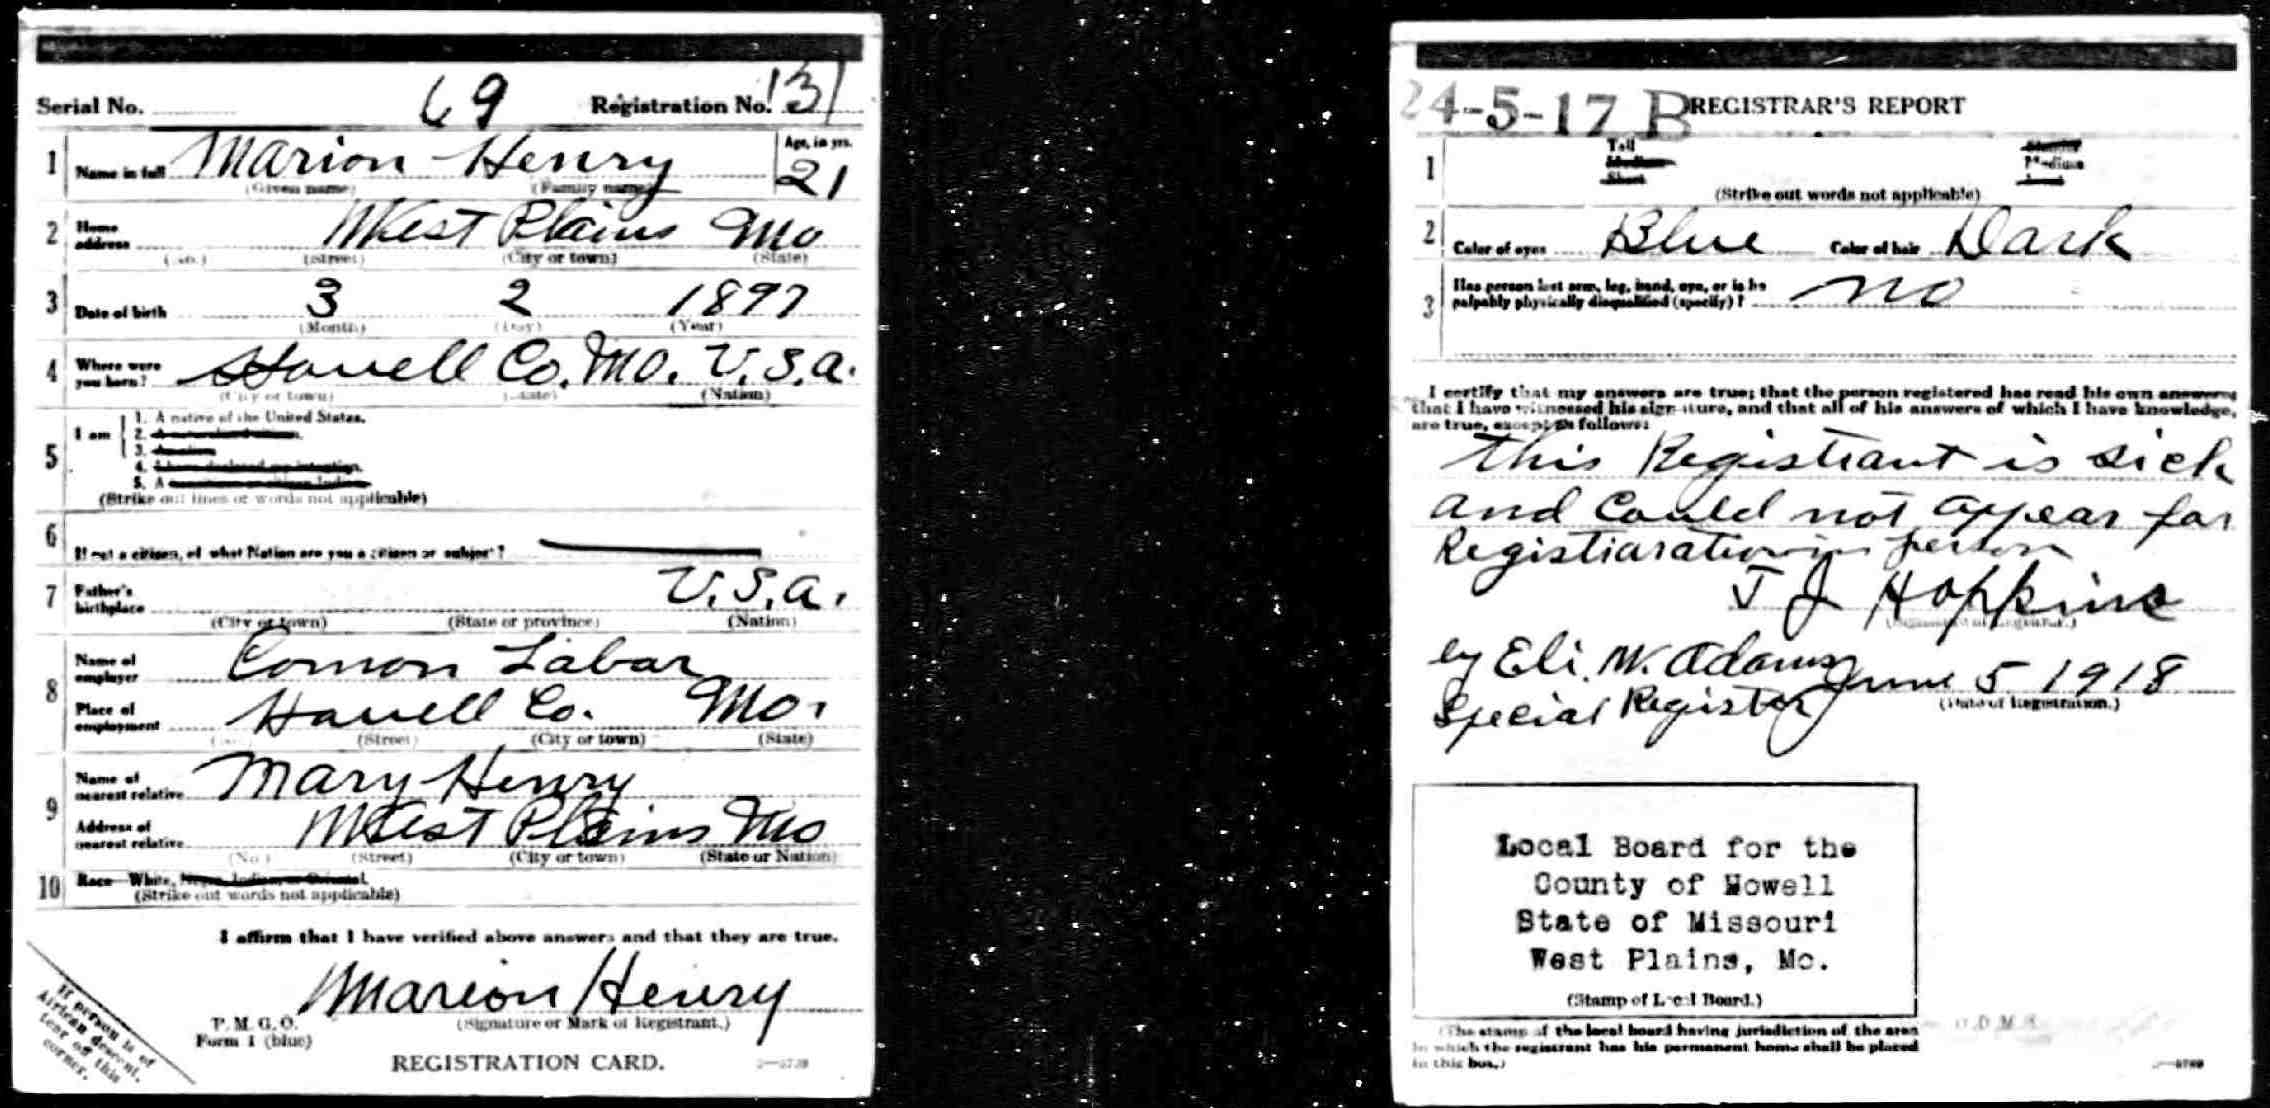 Serial No. 69 Registration No. 131
1 Name in full Marion Henry Age, in yrs. 21
(Given name) (Family name)
2 Home address West Plains Mo
(No.) (Street) (City or town) (State)
3 Date of birth 3 2 1897
(Month) (Day) (Year)
4 Where were you born? Howell Co. Mo. U.S.a.
(City or town) (State) (Nation)
5 I am 1. A native of the United States.
2. A naturalized citizen.
3. An alien
4. I have declared my intention.
5. A
(Strike out lines or words not applicable)
6 If not a citizen, of what Nation are you a citizen or subject?
7 Father's birthplace U.S.a.
(City or town) (State or province) (Nation)
8 Name of employer Comon Labar
Place of employment Howell Co. Mo.
(No.) (Street) (City or town) (State)
9 Name of nearest relative Mary Henry
Address of nearest relative West Plains Mo
(No.) (Street) (City or town) (State or Nation)
10 Race—White, Negro, Indian, or Oriental.
(Strike out words not applicable)
I affirm that I have verified above answers and that they are true.
Marion Henry
P. M. G. O.
Form 1 (blue) (Signature or Mark of Registrant.)
REGISTRATION CARD.
If person is of
African descent,
tear off this
corner.
24-5-17 B REGISTRAR'S REPORT
1 Tall Slender
Medium Medium
Short Stout
(Strike out words not applicable)
2 Color of eyes Blue Color of hair Dark
3 Has person lost arm, leg, hand, eye, or is he
palpably physically disqualified (specify)? no
I certify that my answers are true; that the person registered has read his own answers,
that I have witnessed his signature, and that all of his answers of which I have knowledge,
are true, except as follows:
This Registrant is sick
and Could not appear for
Registiaration in person
J J Hopkins
(Signature of Registrar.)
by Eli. W. Adams June 5 1918
Special Register (Date of Registration.)
Local Board for the
County of Howell
State of Missouri
West Plains, Mo.
(Stamp of Local Board.)
(The stamp of the local board having jurisdiction of the area
in which the registrant has his permanent home shall be placed
in this box.)